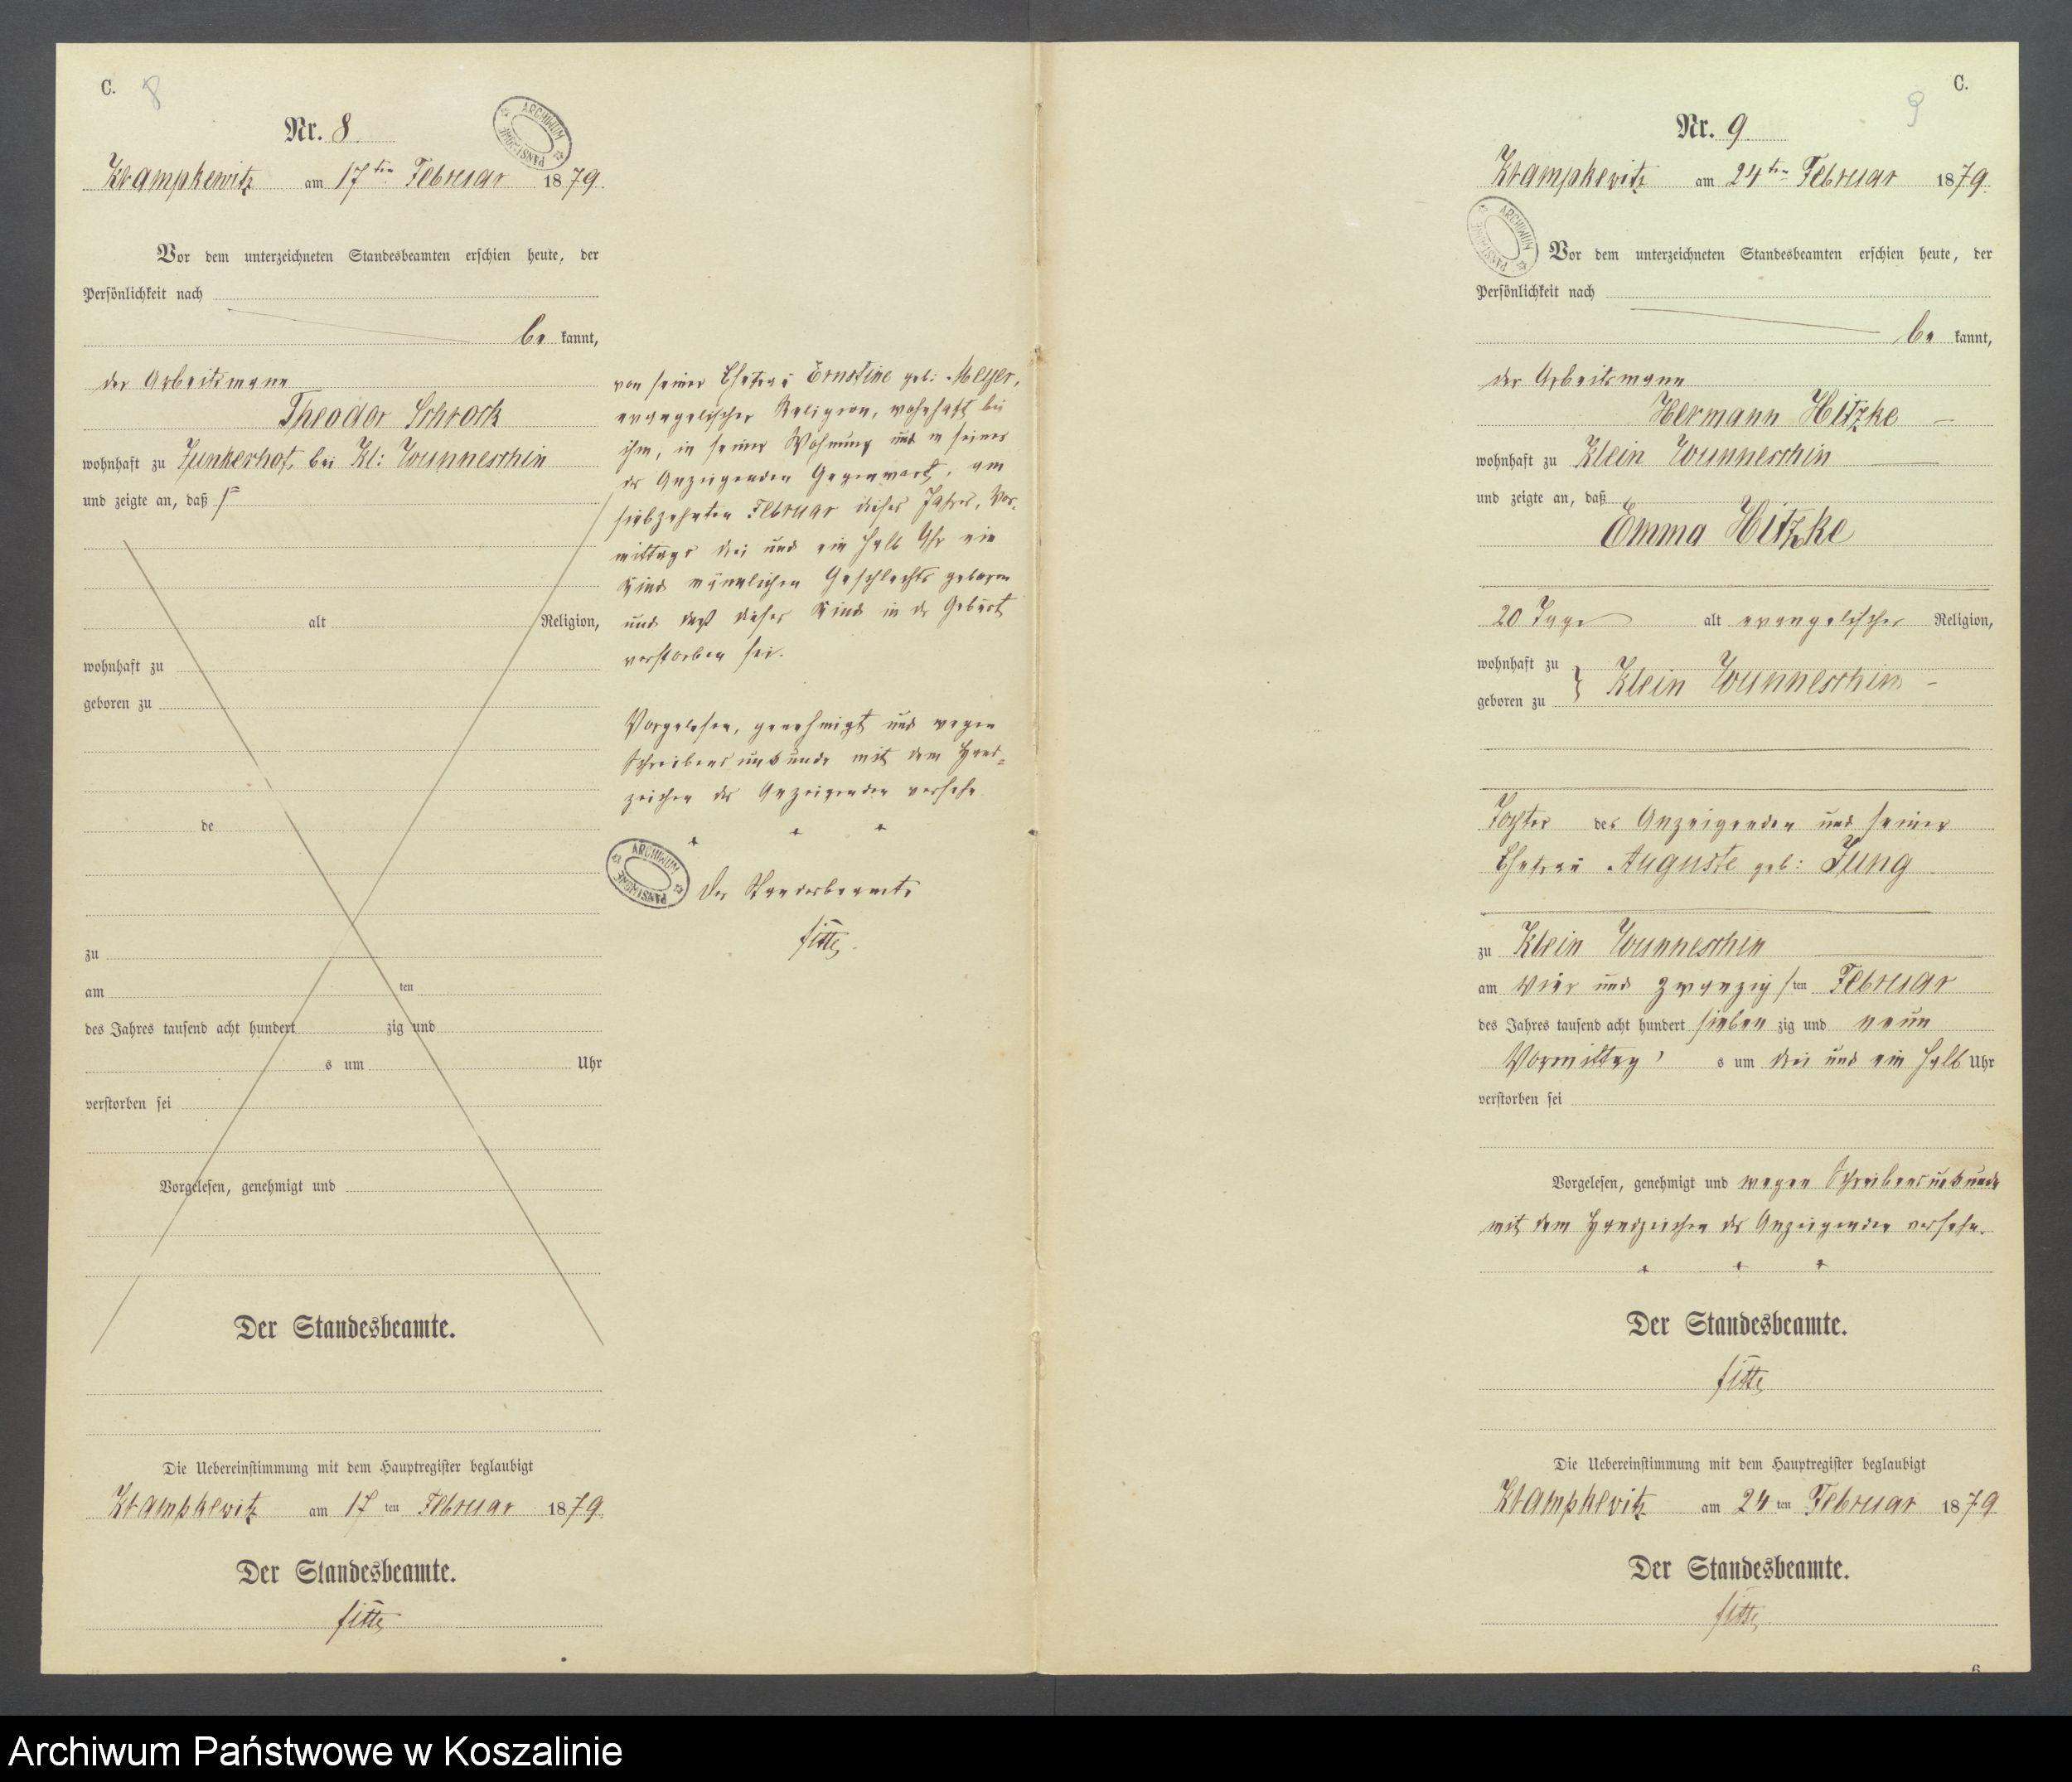 C.
8
Nr. 8.
ARCHIWUM PAŃSTWOWE
Krampkewitz am 17ten Februar 1879.
Vor dem unterzeichneten Standesbeamten erschien heute, der
Persönlichkeit nach
be kannt,
der Arbeitsmann
Theodor Schrock
wohnhaft zu Junkerhof, bei Kl: Wunneschin
und zeigte an, daß
alt Religion,
wohnhaft zu
geboren zu
de
zu
am ten
des Jahres tausend acht hundert zig und
s um Uhr
verstorben sei
Vorgelesen, genehmigt und
Der Standesbeamte.
Die Uebereinstimmung mit dem Hauptregister beglaubigt
Krampkewitz am 17 ten Februar 1879.
Der Standesbeamte.
von seiner Ehefrau Ernstine geb: Meyer,
evangelischer Religion, wohnhaft bei
ihm, in seiner Wohnung und in seiner
des Anzeigenden Gegenwart, am
siebzehnten Februar dieses Jahres, Vor-
mittags drei und ein halb Uhr ein
Kind männlichen Geschlechts geboren
und daß dieses Kind in der Geburt
verstorben sei.
Vorgelesen, genehmigt und wegen
Schreibensunkunde mit dem Hand-
zeichen des Anzeigenden versehn
+ + +
ARCHIWUM PAŃSTWOWE
Der Standesbeamte
C.
9
Nr. 9
Krampkewitz am 24ten Februar 1879.
ARCHIWUM PAŃSTWOWE
Vor dem unterzeichneten Standesbeamten erschien heute, der
Persönlichkeit nach
be kannt,
der Arbeitsmann
Hermann Hitzke
wohnhaft zu Klein Wunneschin
und zeigte an, daß
Emma Hitzke
20 Tage alt evangelischer Religion,
wohnhaft zu
geboren zu } Klein Wunneschin
Tochter des Anzeigenden und seiner
Ehefrau Auguste geb: Jung
zu Klein Wunneschin
am vier und zwanzigsten Februar
des Jahres tausend acht hundert sieben zig und neun
Vormittag s um drei und ein halb Uhr
verstorben sei
Vorgelesen, genehmigt und wegen Schreibensunkunde
mit dem Handzeichen des Anzeigenden versehn.
+ + +
Der Standesbeamte.
Die Uebereinstimmung mit dem Hauptregister beglaubigt
Krampkewitz am 24 ten Februar 1879
Der Standesbeamte.
6
Archiwum Państwowe w Koszalinie